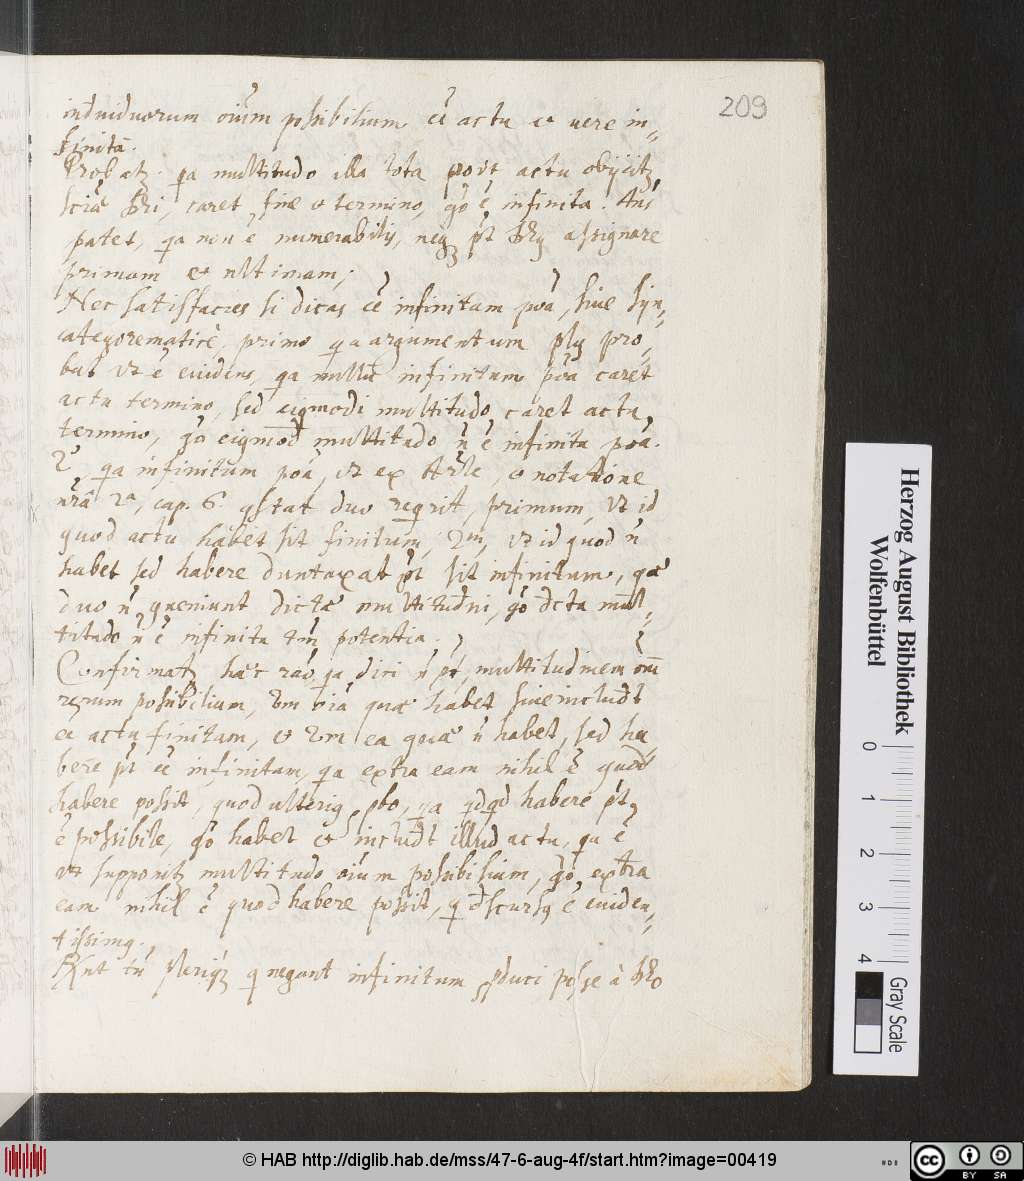 209
individuorum oiūm possibilium eē actu ac uere in=
finitā.
Probatz. qa multitudo illa tota prout actu obijcitz
sciæ , caret fine et termino, gͦ ē infinita. Ans
patet, qa non ē numerabilis, neqz pt assignare
primam et ultimam;
Nec satisfacies si dicas eē infinitam poā, siue syn=
categorematicè, primo qa argumentum plus pro=
bat ut ē euidens, qa nullū infinitum poā caret
actu termino, sed eiꝰmodi multitudo caret actu
termino, gͦ eiꝰmodi multitudo ñ ē infinita poā.
2ͦ qa infinitum poā, ut ex Arle, et notatione
nr̄a 2ᵃ, cap. 6 ꝯstat duo reqrit, primum, ut id
quod actu habet sit finitum, 2m, ut id quod ñ
habet sed habere duntaxat pt sit infinitum, qæ
duo ñ ꝯueniunt dictæ multitudni, gͦ dcta mul=
titudo ñ ē infinita tm̄ potentia.
Confirmatz hæc rao, qa dici ñ pt, multitudinem om̄
rerum possibilium, oia quæ habet siue includt
eē actu finitam, et ea quæ ñ habet, sed ha=
bere pt eē infinitam, qa extra eam nihil ē quod
habere possit, quod ulteriꝰ pbo, qa qdqd habere pt,
ē possibile, gͦ habet et includt illud actu, qa ē
ut supponitz multitudo oiūm possibilium, gͦ extra
eam nihil ē quod habere possit, q dscursꝰ ē euiden=
tissimꝰ.
tn̄ pleriqz q negant infinitum ꝓduci posse à
Herzog August Bibliothek
Wolfenbüttel
0 1 2 3 4
Gray Scale
© HAB http://diglib.hab.de/mss/47-6-aug-4f/start.htm?image=00419
cc BY SA